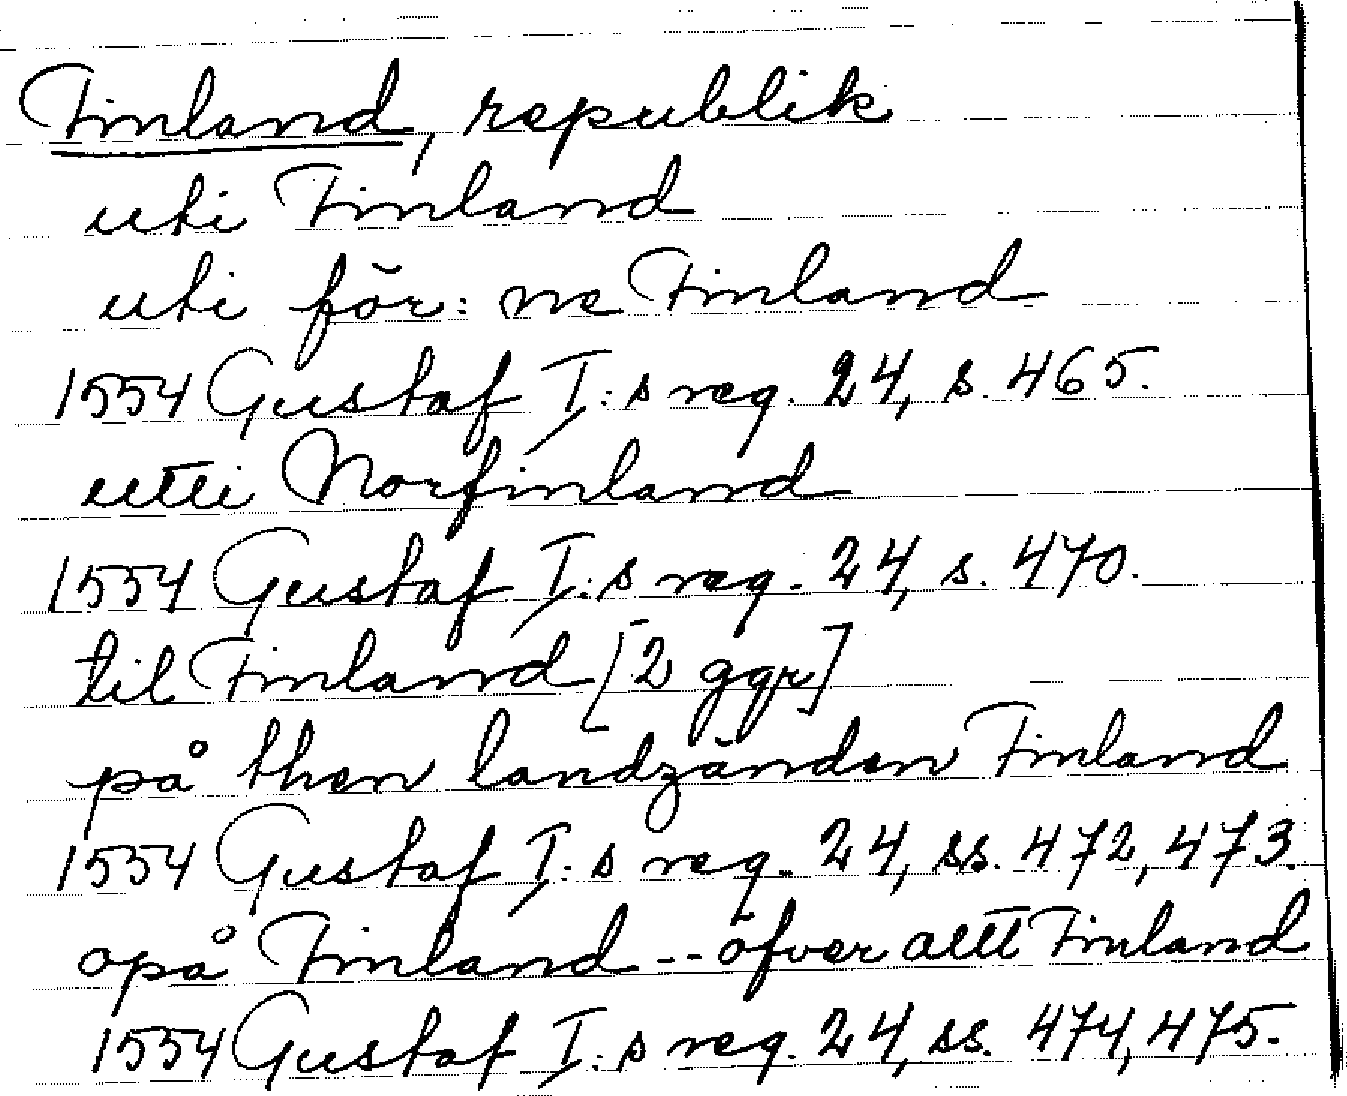 Finland, republik
uti Finland
uti för: ne Finland
1554 Gustaf I:s reg. 24, s. 465.
utti Norfinland
1554 Gustaf I:s reg. 24, s. 470.
til Finland [2 ggr]
på then landzänden Finland
1554 Gustaf I:s reg. 24, ss. 472, 473.
opå Finland -- öfver altt Finland
1554 Gustaf I:s reg. 24, ss. 474, 475.